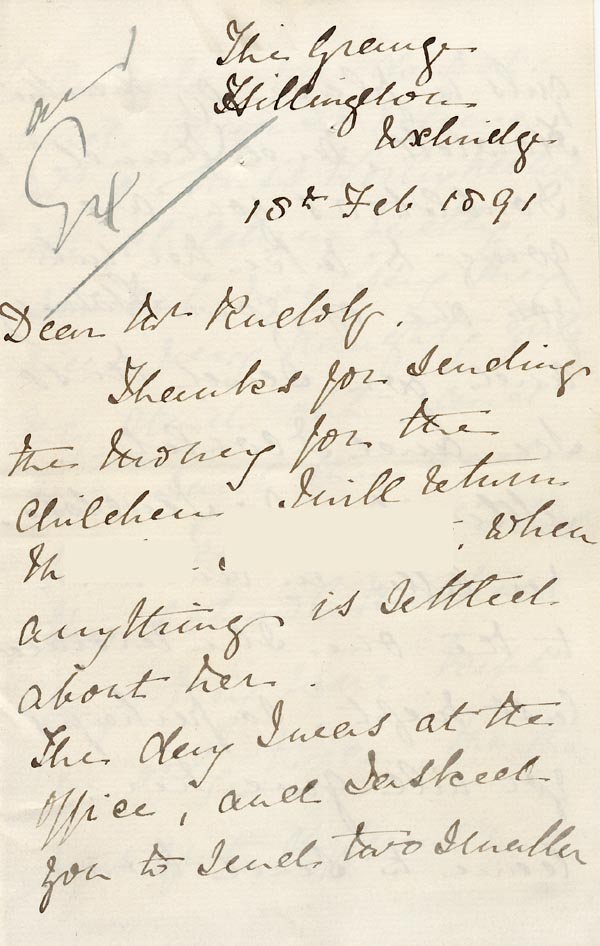 The Grange
Hillingdon
Uxbridge
18th Feb 1891
Dear Mr Rudolf.
Thanks for sending
the money for the
children I will return
when
anything is settled
about her.
The day I was at the
office, and I asked
you to send two smaller